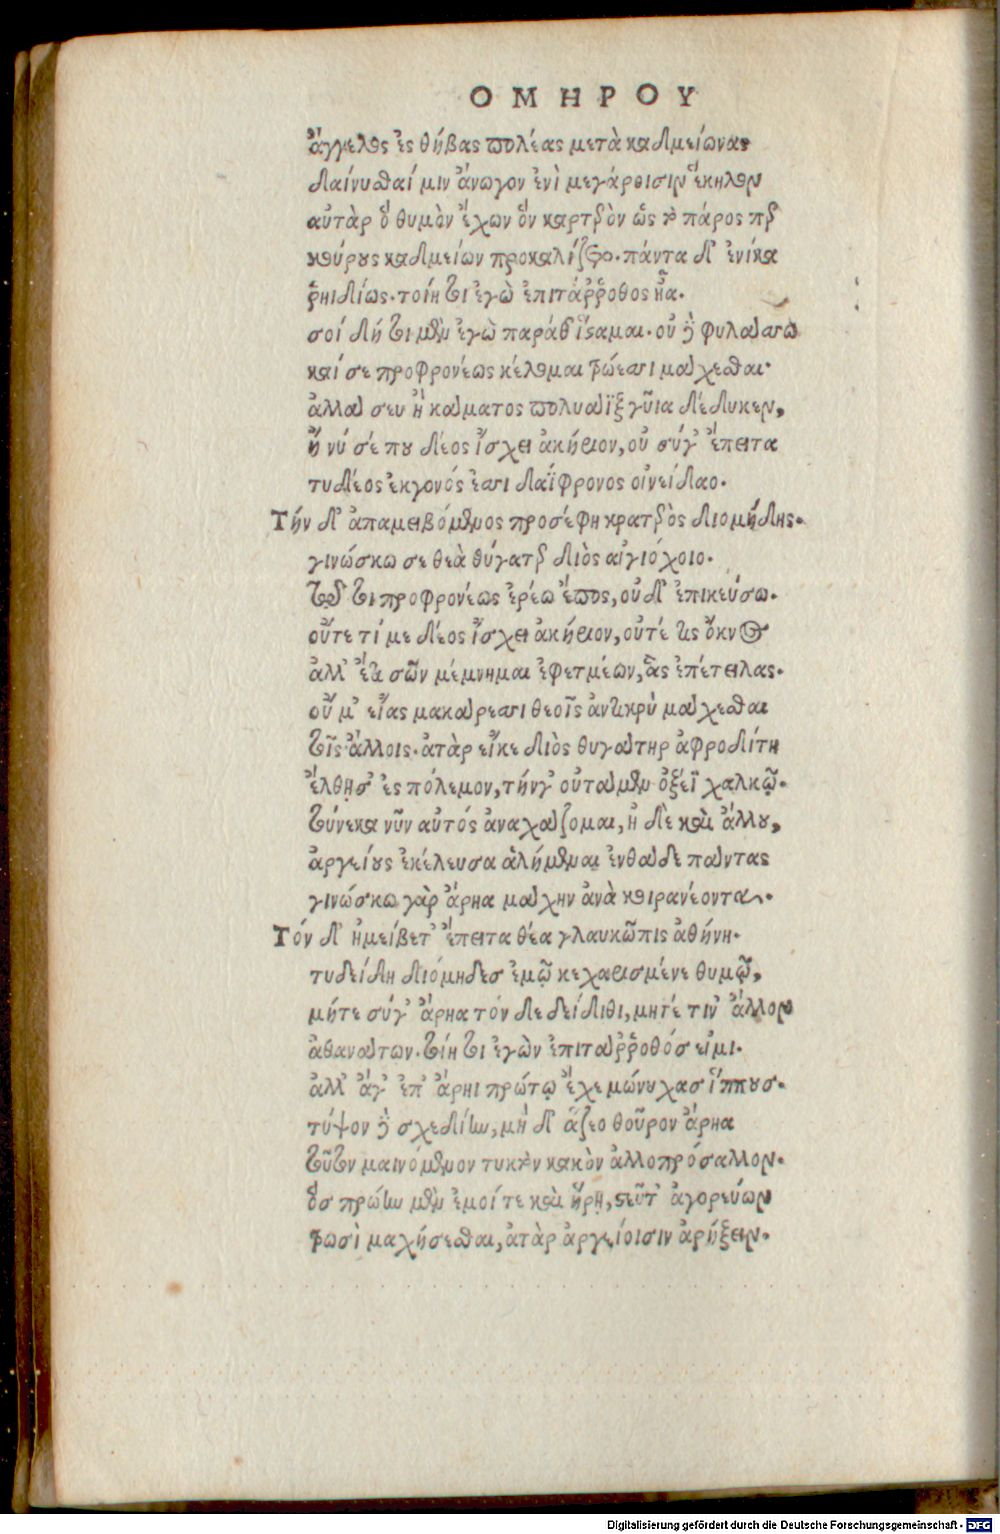 ΟΜΗΡΟΥ
ἄγγελος ἐς θήβας πολέας μετὰ καδμείωνας
δαίνυσθαί μιν ἄνωγον ἐνὶ μεγάροισιν ἕκηλον
αὐτὰρ ὁ θυμὸν ἔχων ὃν καρτερὸν ὡς τὸ πάρος περ
κούρους καδμείων προκαλίζετο. πάντα δ' ἐνίκα
ῥηιδίως. τοίη οἱ ἐγὼ ἐπιτάῤῥοθος ἦα.
σοὶ δή τοι μὲν ἐγὼ παράθ' ἵσαμαι. οὐ καὶ φυλάσσω
καί σε προφρονέως κέλομαι τρώεσσι μάχεσθαι·
ἀλλά σευ ἢ κάματος πολυάϊξ γῦια δέδυκεν,
ἤ νύ σέ που δέος ἴσχει ἀκήριον, οὐ σύγ' ἔπειτα
τυδέος ἐκγονός ἐσσι δαΐφρονος οἰνείδαο.
Τήν δ' ἀπαμειβόμενος προσέφη κρατερὸς διομήδης.
γινώσκω σε θεὰ θύγατερ διὸς αἰγιόχοιο.
τῷ τοι προφρονέως ἐρέω ἔπος, οὐδ' ἐπικεύσω.
οὔτε τί με δέος ἴσχει ἀκήριον, οὐτέ τις ὄκνος
ἀλλ' ἔτι σῶν μέμνημαι ἐφετμέων, ἃς ἐπέτειλας.
οὔ μ' εἴας μακάρεσσι θεοῖς ἀντικρὺ μάχεσθαι
τοῖς ἄλλοις. ἀτὰρ εἴκε διὸς θυγάτηρ ἀφροδίτη
ἔλθησ' ἐς πόλεμον, τήνγ' οὐτάμεν ὀξέϊ χαλκῷ.
τούνεκα νῦν αὐτός ἀναχάζομαι, ἠ δὲ καὶ ἄλλους,
ἀργείους ἐκέλευσα ἀλήμεναι ἐνθάδε πάντας
γινώσκω γὰρ ἄρηα μάχην ἀνὰ κοιρανέοντα.
Τόν δ' ἠμείβετ' ἔπειτα θέα γλαυκῶπις ἀθήνη.
τυδείδη διόμηδεσ ἐμῷ κεχαρισμένε θυμῷ,
μήτε σύγ' ἄρηα τόν δε δείδιθι, μητέ τιν' ἄλλον
ἀθανάτων. τοίη τοι ἐγὼν ἐπιτάῤῥοθόσ εἰμι.
ἀλλ' ἄγ' ἐπ' ἄρηι πρώτῳ ἔχε μώνυχασ ἵππουσ.
τύψον καὶ σχεδίην, μὴ δ' ἅζεο θοῦρον ἄρηα
τοῦτον μαινόμενον τυκτὸν κακὸν ἀλλοπρόσαλλον.
ὃσ πρώην μὲν ἐμοί τε καὶ ἥρῃ, στεῦτ' ἀγορεύων
τρωσὶ μαχήσεσθαι, ἀτὰρ ἀργείοισιν ἀρήξειν.
Digitalisierung gefördert durch die Deutsche Forschungsgemeinschaft - DFG